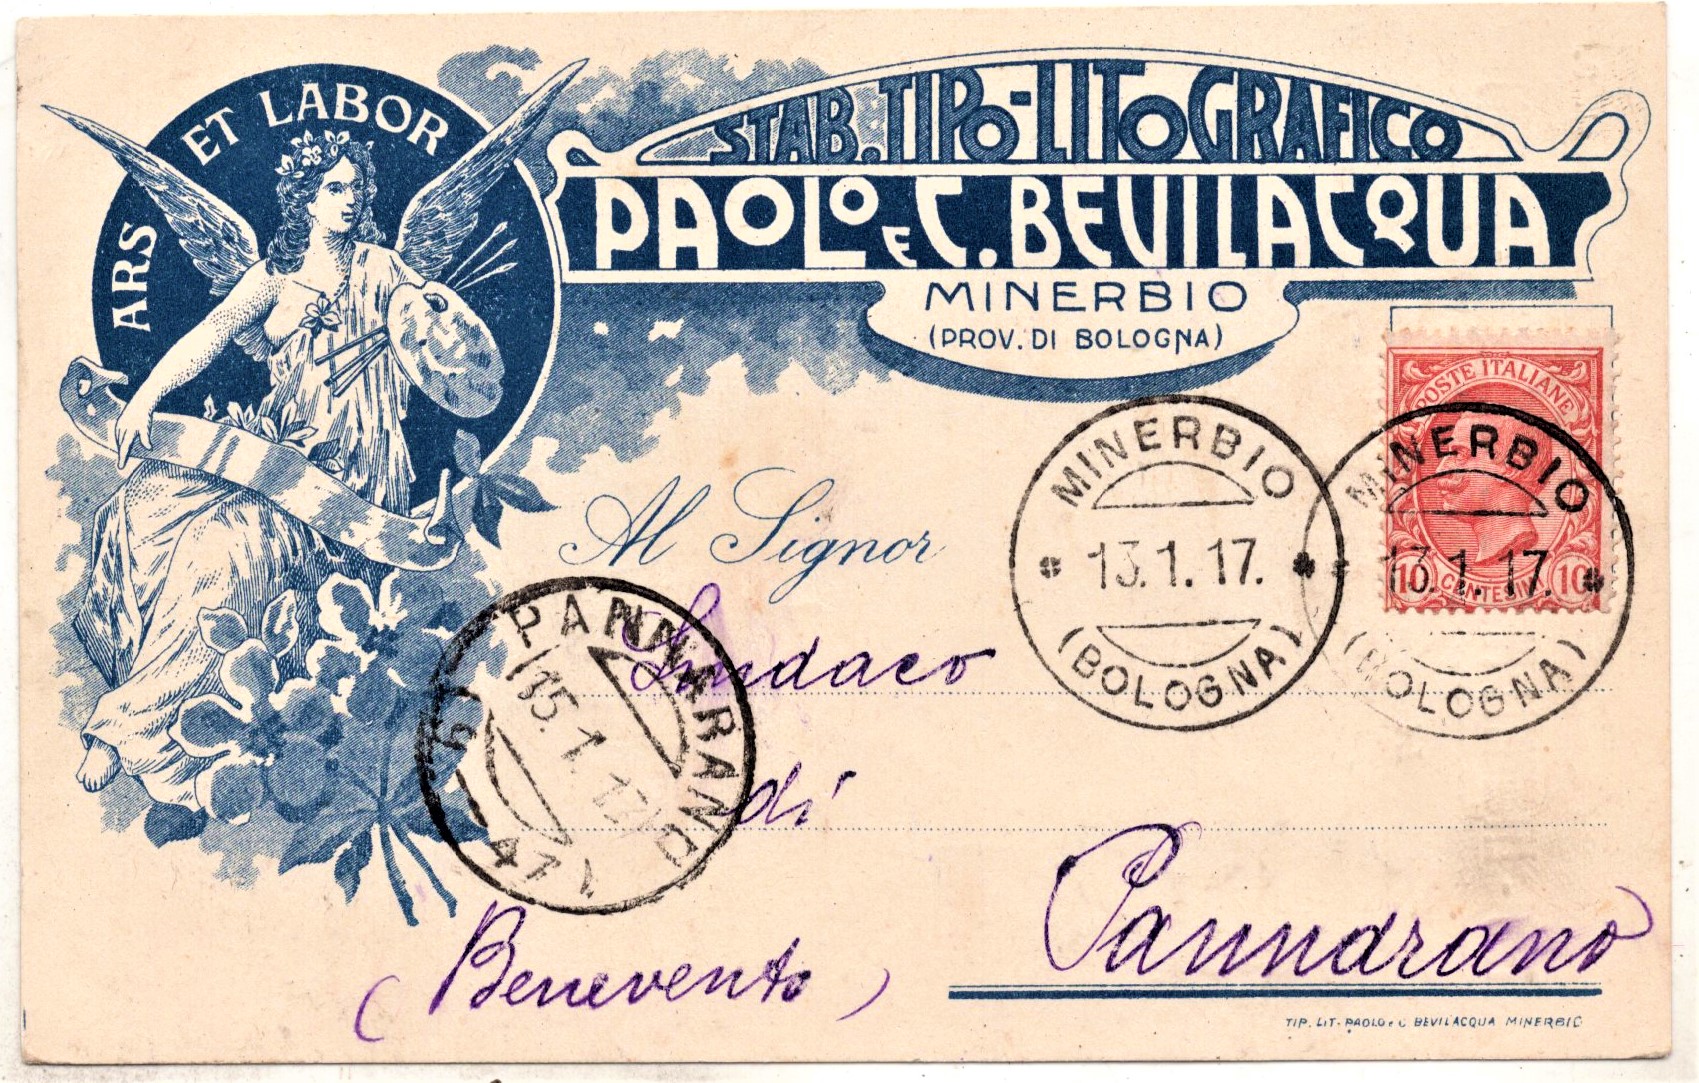 ARS ET LABOR
STAB. TIPO-LITOGRAFICO
PAOLO E C. BEVILACQUA
MINERBIO
(PROV. DI BOLOGNA)
POSTE ITALIANE
10 CENTESIMI 10
MINERBIO
13.1.17.
(BOLOGNA)
MINERBIO
13.1.17.
(BOLOGNA)
Al Signor
Sindaco
di
Pannarano
(Benevento)
PANNARANO
15.1.17
TIP. LIT. PAOLO E C BEVILACQUA MINERBIO